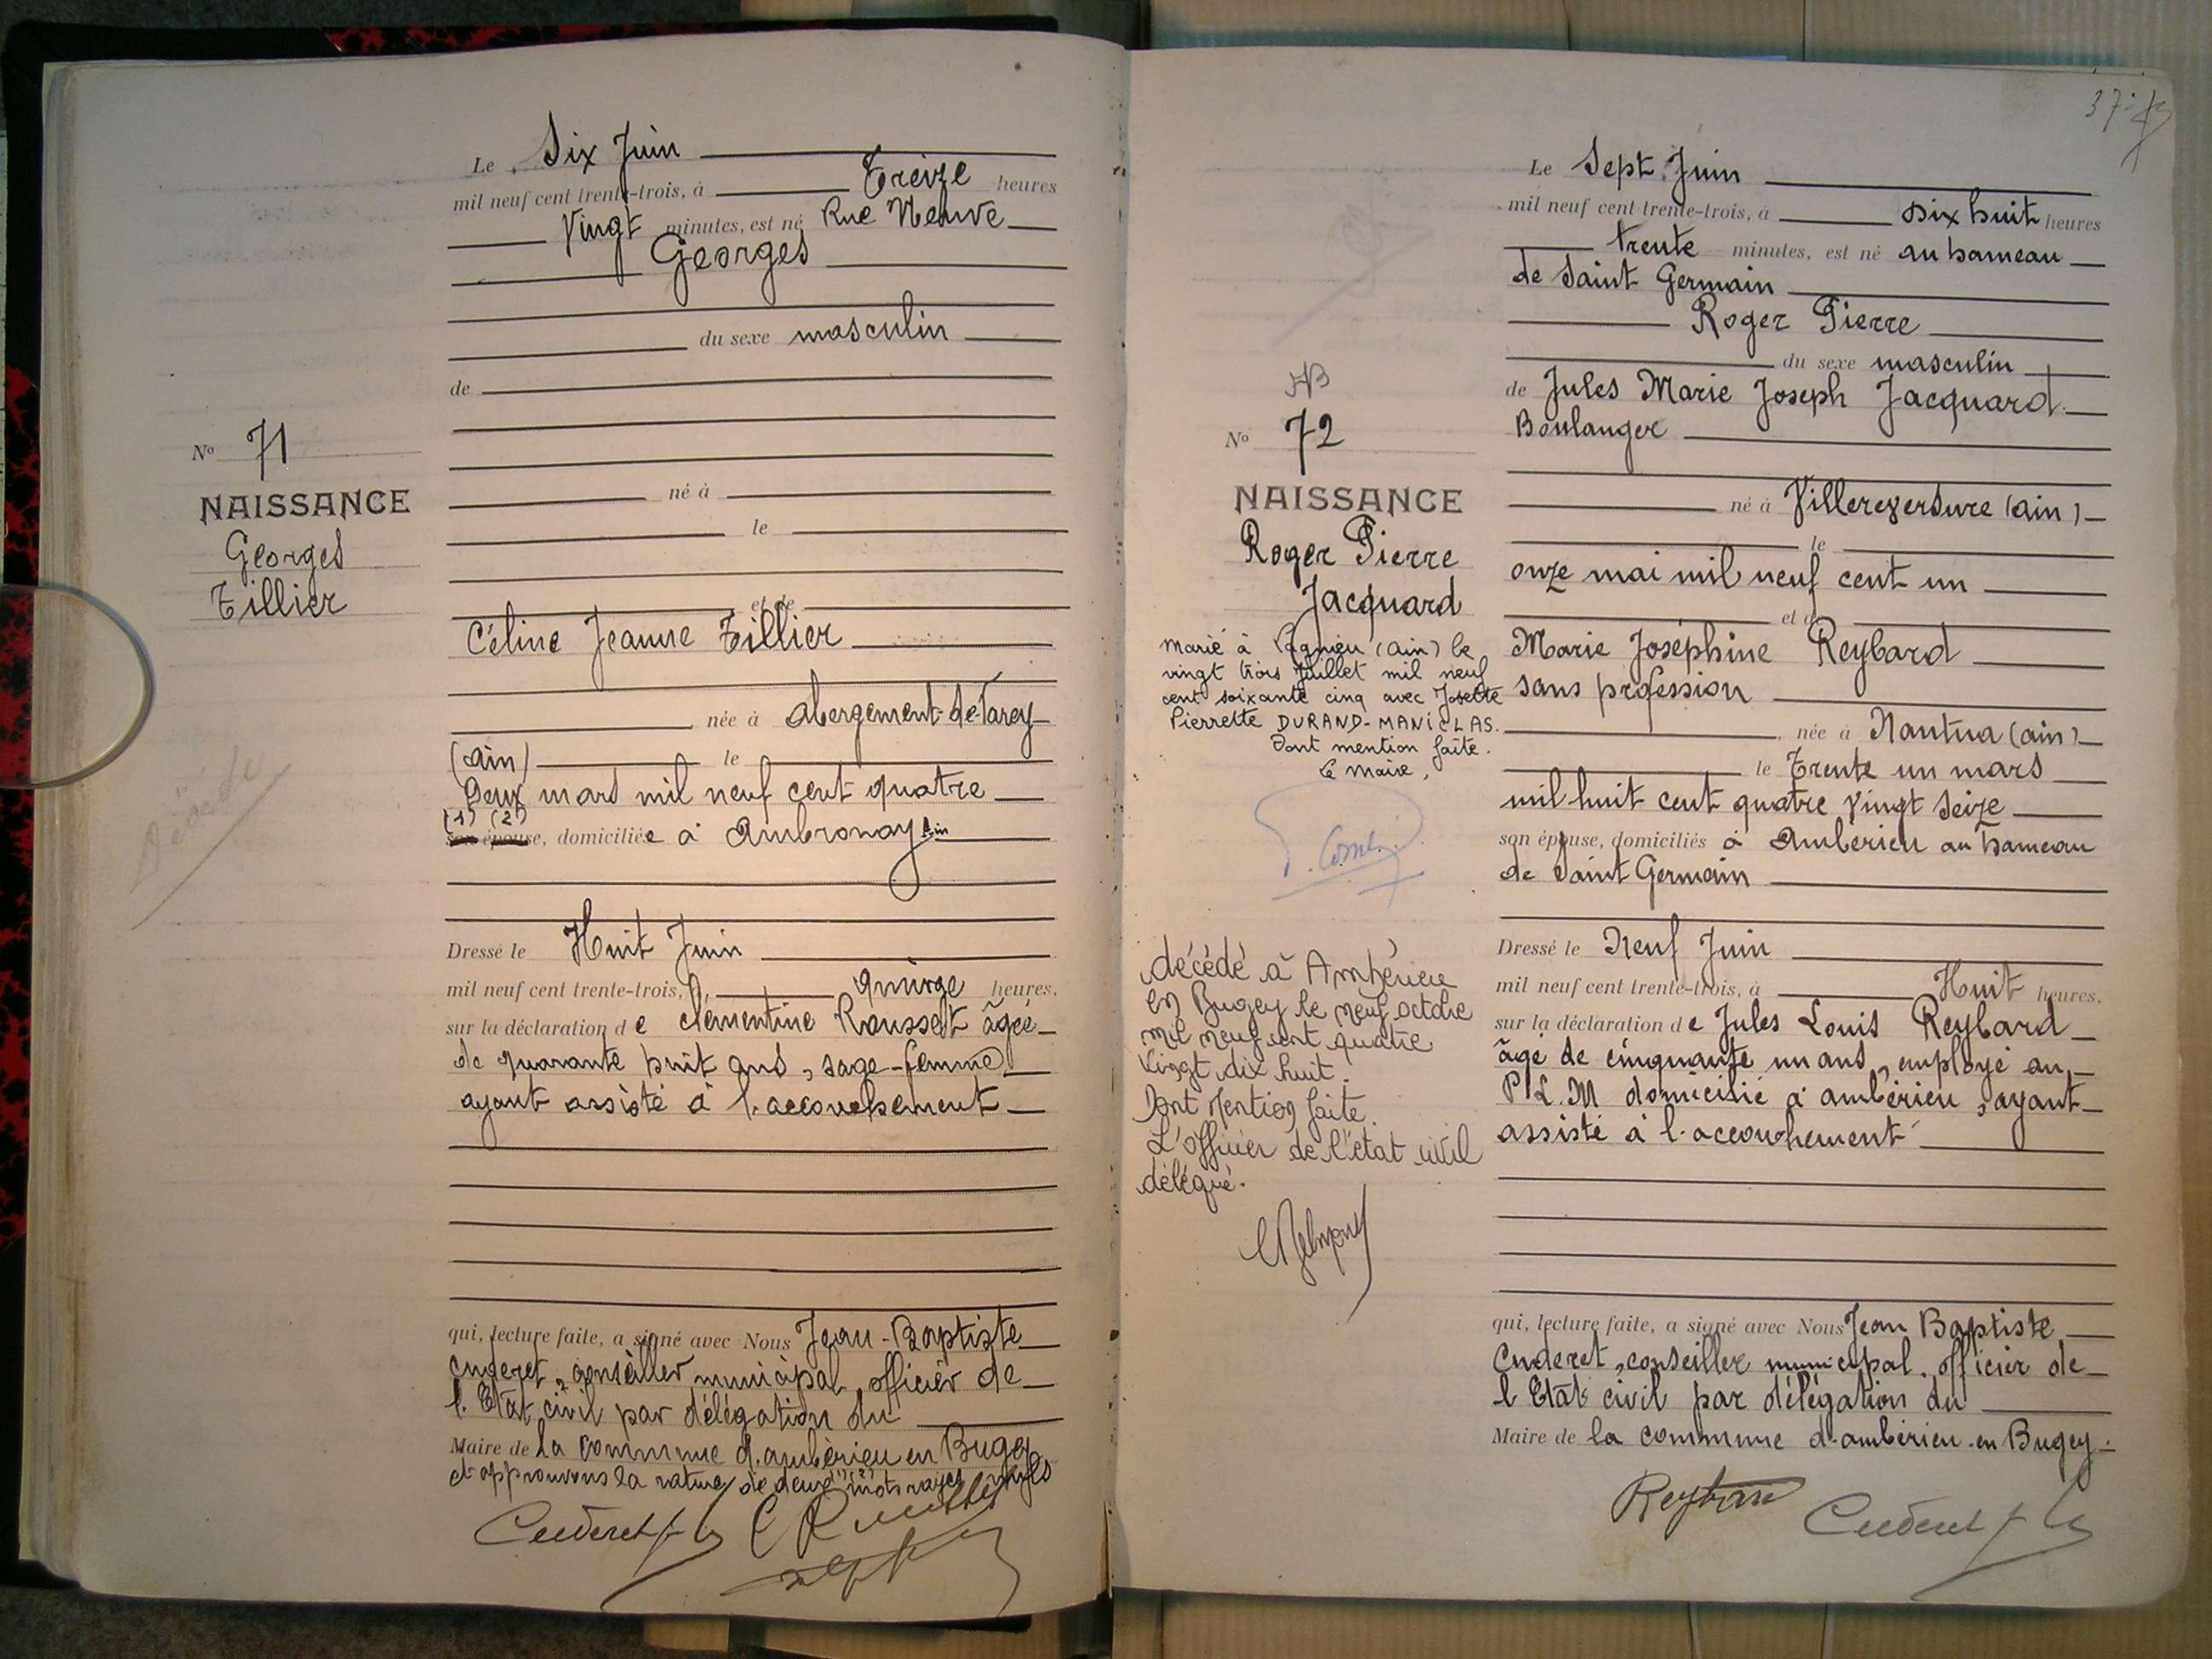 Le Six Juin
mil neuf cent trente-trois, à Treize heures
Vingt minutes, est né Rue Neuve
Georges
du sexe masculin
de
né à
le
et de
Céline Jeanne Tillier
née à Abergement-de-Varey
(Ain) le
Deux mars mil neuf cent quatre
(1) (2)
son épouse, domiciliée à Ambronay Ain
Dressé le Huit Juin
mil neuf cent trente-trois, à quinze heures,
sur la déclaration de Clementine Rousset âgée
de quarante huit ans, sage-femme
ayant assisté à l'accouchement
qui, lecture faite, a signé avec Nous Jean-Baptiste
Cuderet, conseiller municipal, officier de
l'Etat civil par délégation du
Maire de la commune d'Ambérieu en Bugey
et approuvons la rature de deux (1) (2) mots rayés nuls
Cuderet
No 71
NAISSANCE
Georges
Tillier
Décédé
37
Le Sept Juin
mil neuf cent trente-trois, à dix huit heures
trente minutes, est né au hameau
de Saint Germain
Roger Pierre
du sexe masculin
de Jules Marie Joseph Jacquard
Boulanger
né à Villereversure (Ain)
le
onze mai mil neuf cent un
et de
Marie Joséphine Reybard
sans profession
née à Nantua (Ain)
le Trente un mars
mil huit cent quatre vingt seize
son épouse, domiciliés à Ambérieu au hameau
de Saint Germain
Dressé le Neuf Juin
mil neuf cent trente-trois, à Huit heures,
sur la déclaration de Jules Louis Reybard
âgé de cinquante un ans, employé au
P.L.M domicilié à Ambérieu, ayant
assisté à l'accouchement
qui, lecture faite, a signé avec Nous Jean Baptiste
Cuderet, conseiller municipal, officier de
l'Etat civil par délégation du
Maire de la commune d'Ambérieu-en-Bugey.
Reybard Cuderet
No 72
NAISSANCE
Roger Pierre
Jacquard
Marié à Lagnieu (Ain) le
vingt trois Juillet mil neuf
cent soixante cinq avec Josette
Pierrette DURAND-MANICLAS.
Dont mention faite.
Le Maire,
décédé à Ambérieu
en Bugey le neuf octobre
mil neuf cent quatre
vingt dix huit.
Dont Mention faite.
L'officier de l'état civil
délégué.